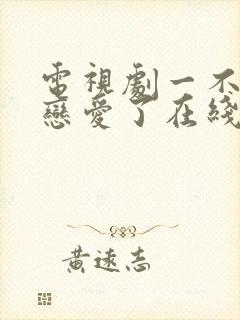 電視劇一不
戀愛了在綫
黃遠志